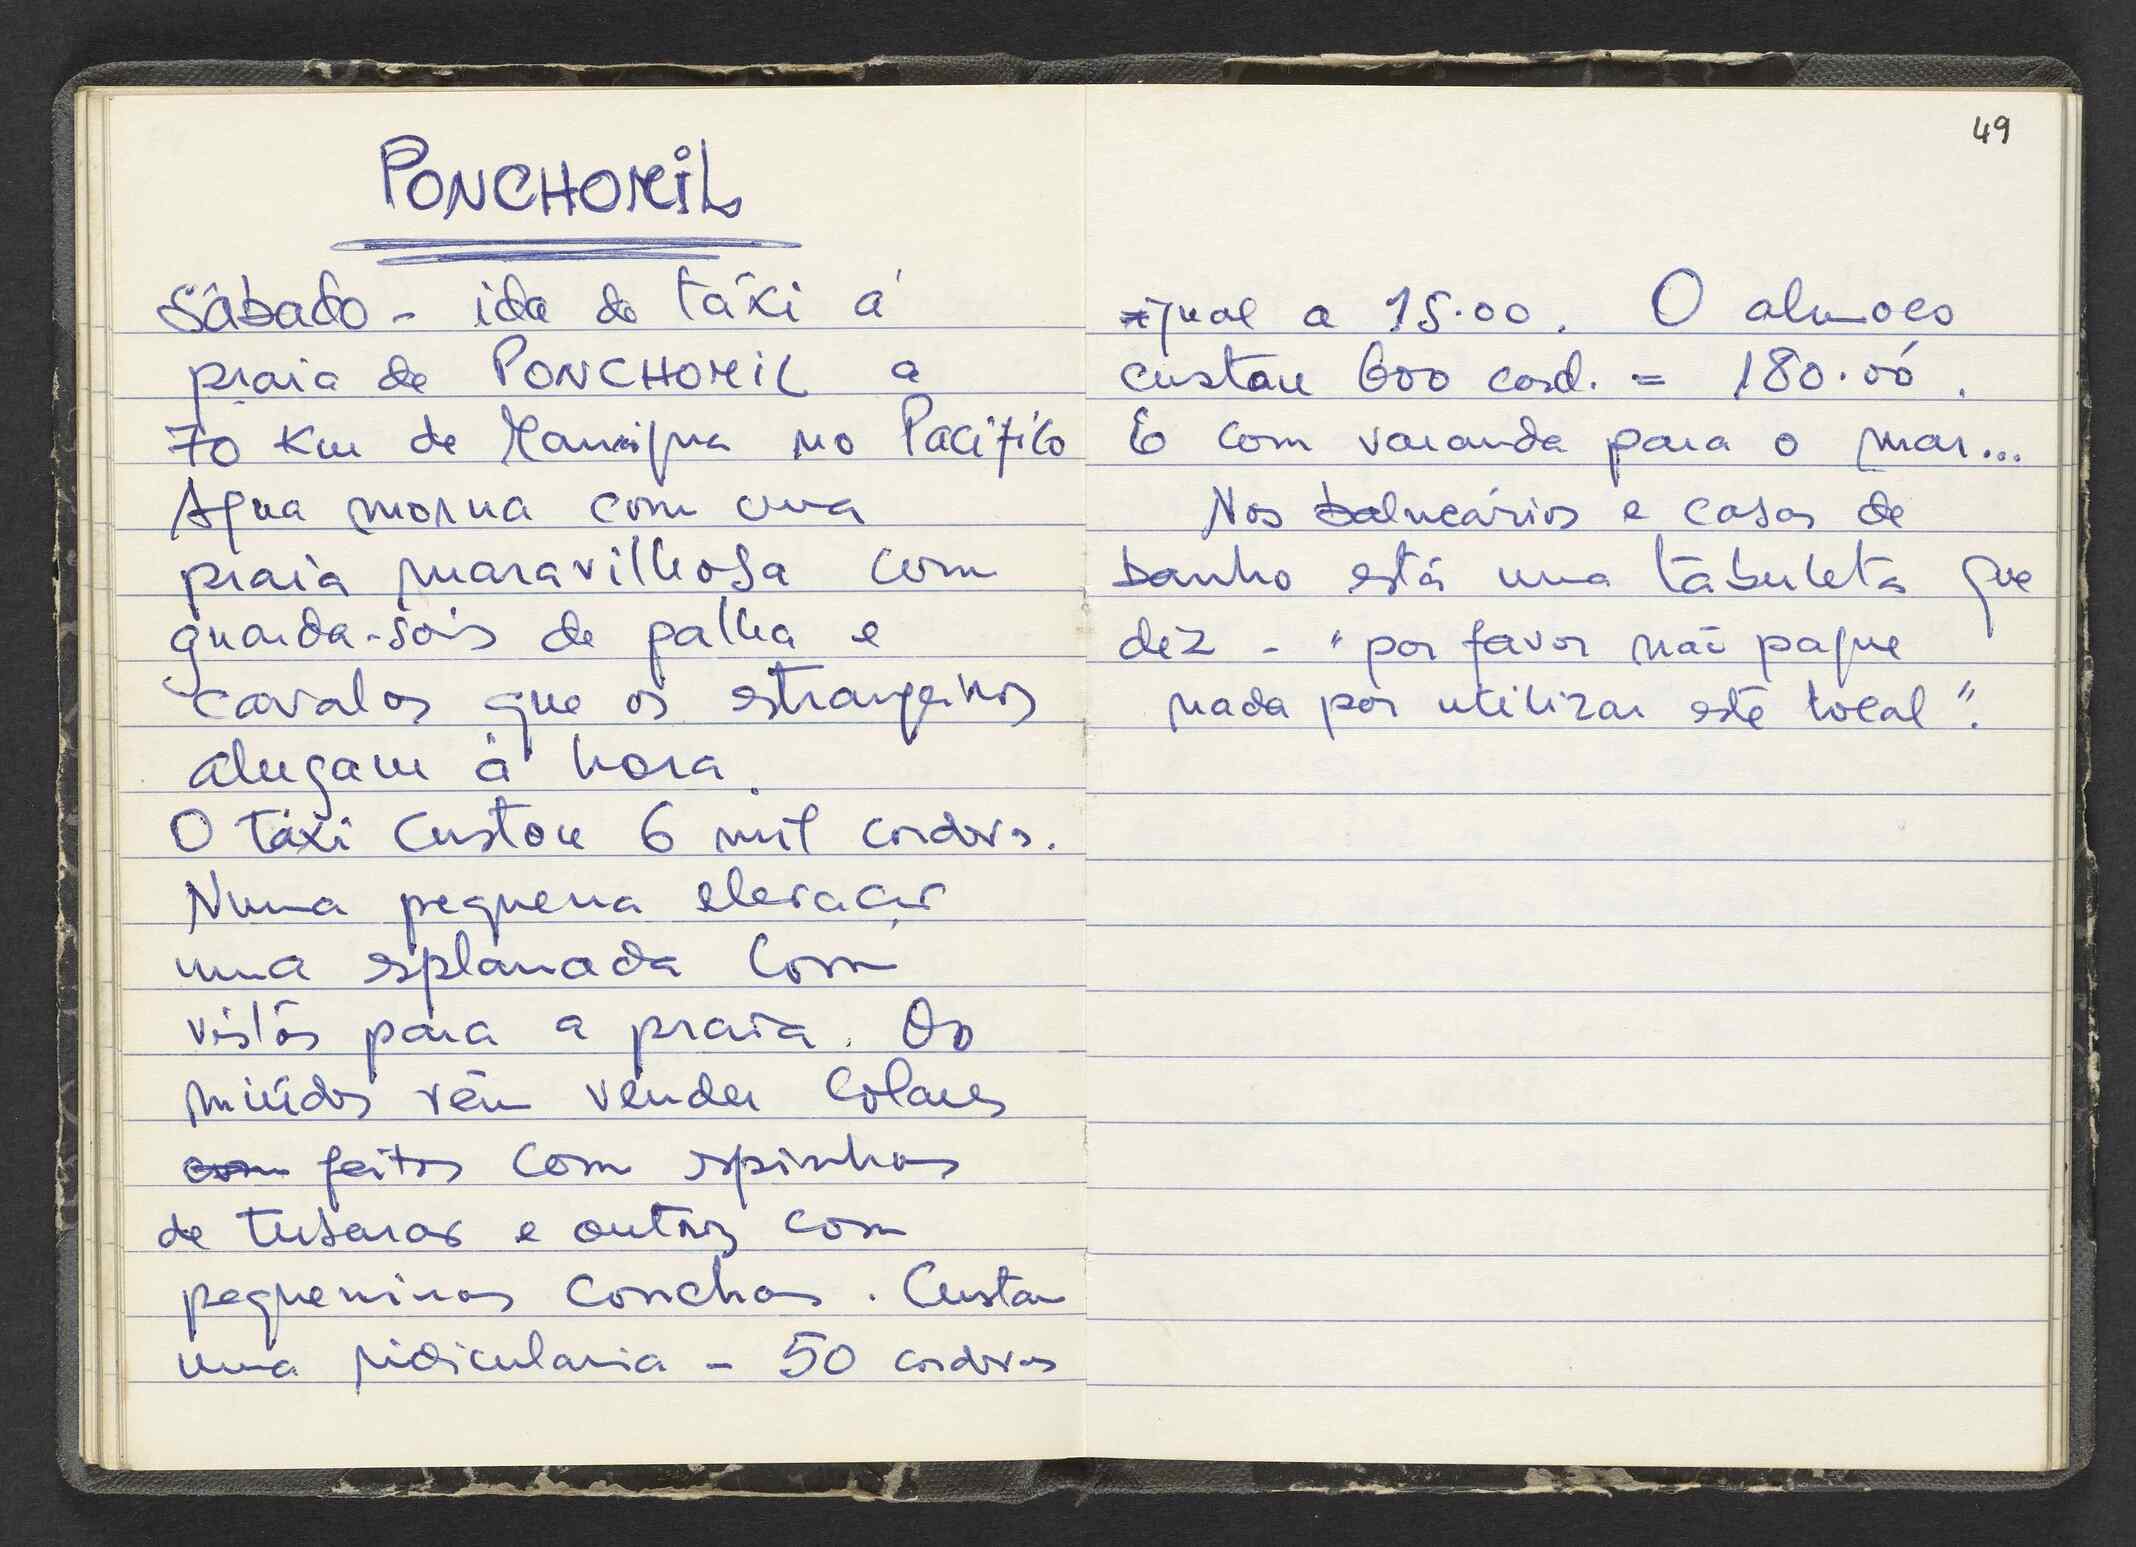 PONCHOMIL
Sábado - ida de táxi à
praia de PONCHOMIL a
70 Km de Managua no Pacífico
Agua morna com uma
praia maravilhosa com
guarda-sóis de palha e
cavalos que os estrangeiros
alugam à hora.
O táxi custou 6 mil cordovs.
Numa pequena elevação
uma esplanada com
vistas para a praia. Os
miúdos vêm vender colares
com feitos com espinhas
de tubarão e outros com
pequeninas conchas. Custam
uma ridicularia - 50 cordovas
49
igual a 15.00. O almoço
custou 600 cord. = 180.00.
E com varanda para o mar...
Nos balneários e casas de
banho está uma tabuleta que
diz - "por favor não pague
nada por utilizar este local".